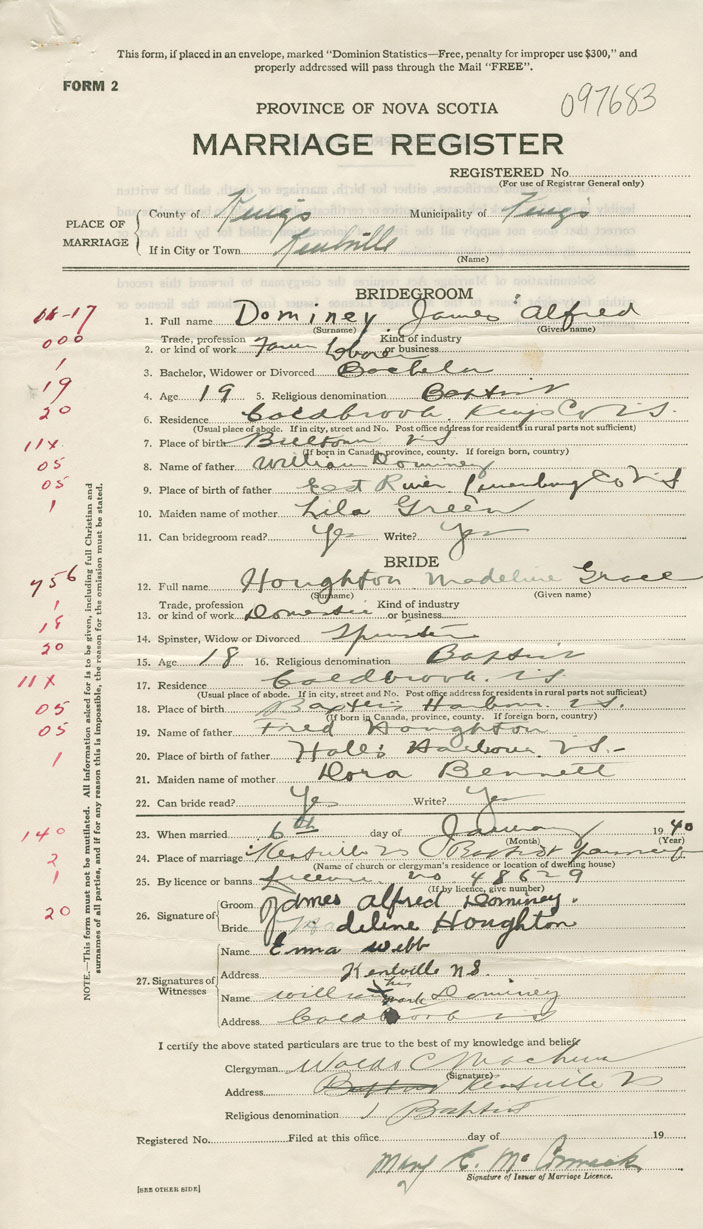 This form, if placed in an envelope, marked "Dominion Statistics—Free, penalty for improper use $300," and
properly addressed will pass through the Mail "FREE".
FORM 2
PROVINCE OF NOVA SCOTIA 097683
MARRIAGE REGISTER
REGISTERED No.
(For use of Registrar General only)
PLACE OF MARRIAGE
County of Kings Municipality of Kings
If in City or Town Kentville
(Name)
BRIDEGROOM
1. Full name Dominey James Alfred
(Surname) (Given name)
Trade, profession Kind of industry
2. or kind of work Farm Laborer or business
3. Bachelor, Widower or Divorced Bachelor
4. Age 19 5. Religious denomination Baptist
6. Residence Coldbrook Kings Co N.S.
(Usual place of abode. If in city, street and No. Post office address for residents in rural parts not sufficient)
7. Place of birth Billtown N S
(If born in Canada, province, county. If foreign born, country)
8. Name of father William Dominey
9. Place of birth of father East River Lunenburg Co N S
10. Maiden name of mother Lila Green
11. Can bridegroom read? Yes Write? Yes
BRIDE
12. Full name Houghton Madeline Grace
(Surname) (Given name)
Trade, profession Kind of industry
13. or kind of work Domestic or business
14. Spinster, Widow or Divorced Spinster
15. Age 18 16. Religious denomination Baptist
17. Residence Coldbrook N.S.
(Usual place of abode. If in city, street and No. Post office address for residents in rural parts not sufficient)
18. Place of birth Baxters Harbour N.S.
(If born in Canada, province, county. If foreign born, country)
19. Name of father Fred Houghton
20. Place of birth of father Halls Harbour N.S.
21. Maiden name of mother Dora Bennett
22. Can bride read? Yes Write? Yes
23. When married 6th day of January 1940
(Month) (Year)
24. Place of marriage Kentville N S Baptist Parsonage
(Name of church or clergyman's residence or location of dwelling house)
25. By licence or banns License no 48629
(If by licence, give number)
26. Signature of
Groom James Alfred Dominey.
Bride Madeline Houghton
27. Signatures of Witnesses
Name Erma Webb
Address Kentville N.S.
Name William his X mark Dominey
Address Coldbrook N S
I certify the above stated particulars are true to the best of my knowledge and belief.
Clergyman
(Signature)
Address Kentville N S
Religious denomination Baptist
Registered No. Filed at this office day of 19
Mary E. McCormack
Signature of Issuer of Marriage Licence.
[SEE OTHER SIDE]
NOTE.—This form must not be mutilated. All Information asked for is to be given, including full Christian and
surnames of all parties, and if for any reason this is impossible, the reason for the omission must be stated.
000
1
19
20
11X
05
05
1
756
1
18
20
11X
05
05
1
140
2
1
20